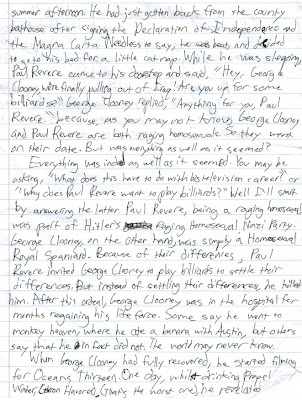 summer afternoon. He had just gotten back from the county
bathouse after signing the Declaration of Independence and
the Magna Carta. Needless to say, he was beat, and decided
to go to his bed for a little catnap. While he was sleeping,
Paul Revere came to his doorstep and said, "Hey, George
Clooney, we're finally pulling out of Iraq! Are you up for some
billiards?" George Clooney replied, "Anything for you, Paul
Revere." because, as you may not know, George Clooney
and Paul Revere are both raging homosexuals. So they went
on their date. But was everything as well as it seemed?
Everything was indeed as well as it seemed. You may be
asking, "What does this have to do with his television career?" or
"Why does Paul Revere want to play billiards?" Well I'll start
by answering the latter. Paul Revere, being a raging homosexual
was part of Hitler's Raging Homosexual Nazi Party.
George Clooney, on the other hand, was simply a Homosexual
Royal Spaniard. Because of their differences, Paul
Revere invited George Clooney to play billiards to settle their
differences. But instead of settling their differences, he killed
him. After this ordeal, George Clooney was in the hospital for
months regaining his life force. Some say he went to
monkey heaven, where he ate a banana with Austin, but others
say that he in fact did not. The world may never know.
When George Clooney had fully recovered, he started filming
for Oceans Thirteen. One day, whilst drinking Propel
Water, (Lemon Flavored), (That's the worst one), he revealed